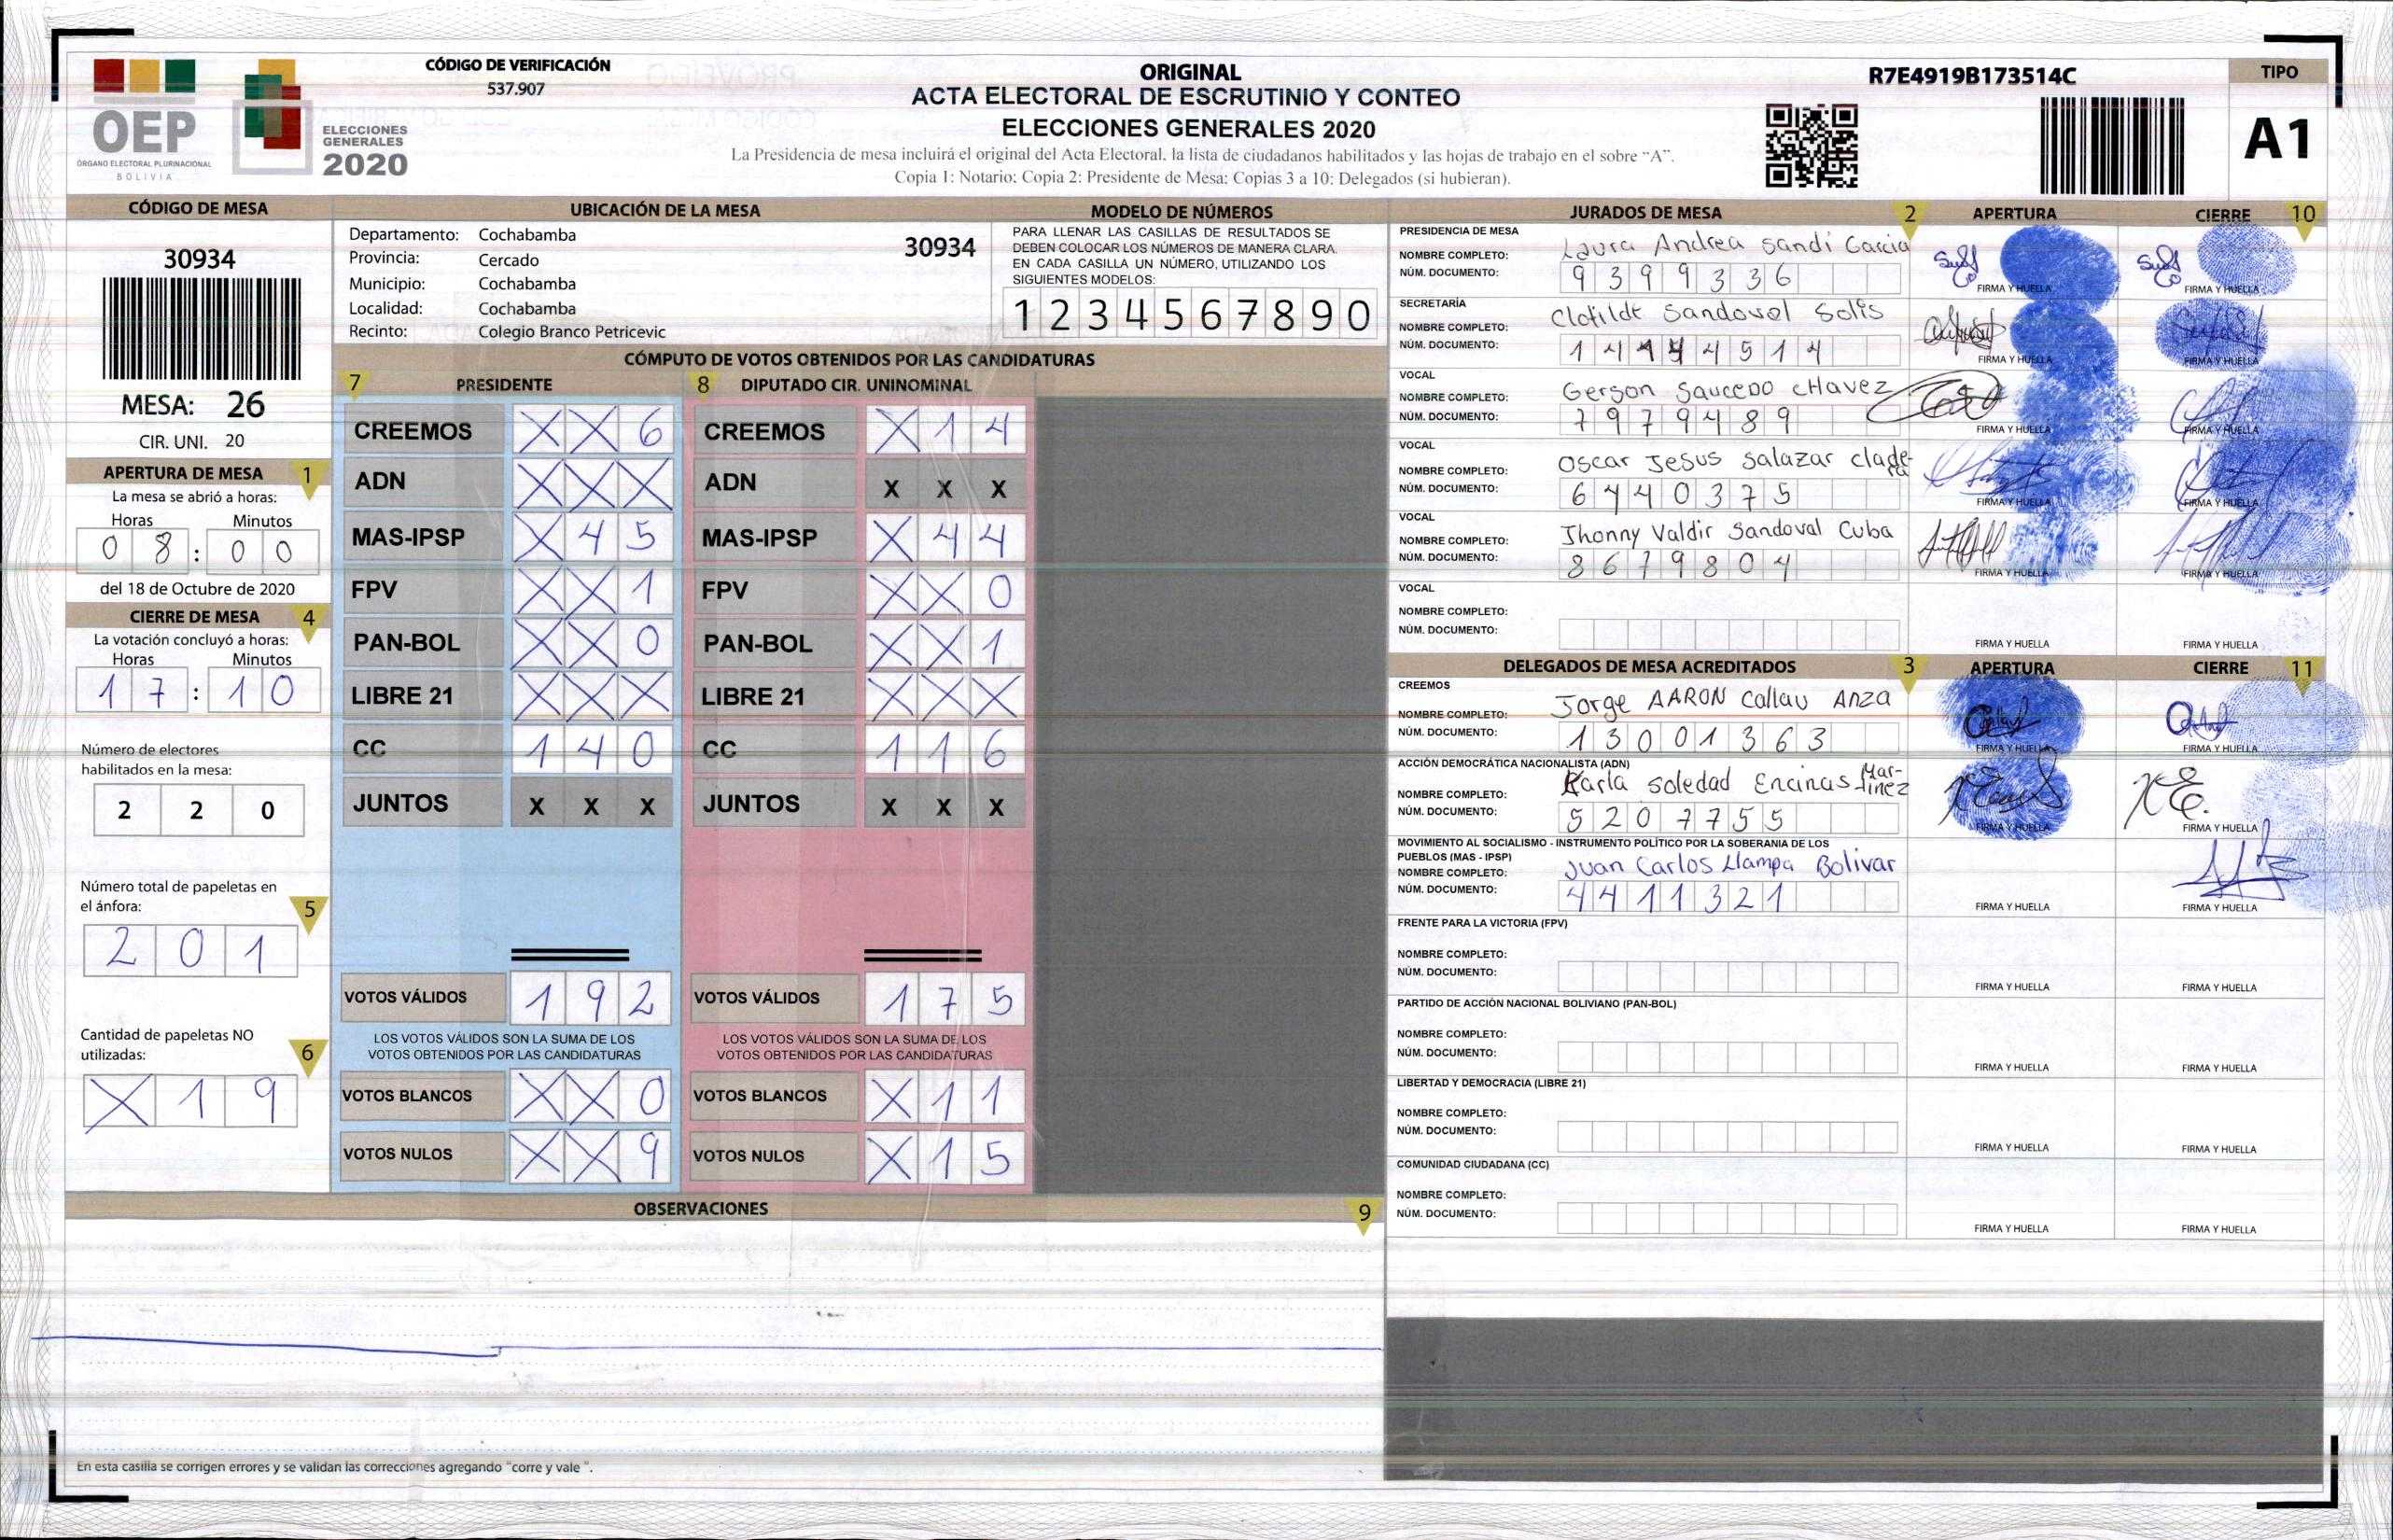 OEP
ÓRGANO ELECTORAL PLURINACIONAL
BOLIVIA
ELECCIONES
GENERALES
2020
CÓDIGO DE VERIFICACIÓN
537.907
ORIGINAL
ACTA ELECTORAL DE ESCRUTINIO Y CONTEO
ELECCIONES GENERALES 2020
La Presidencia de mesa incluirá el original del Acta Electoral, la lista de ciudadanos habilitados y las hojas de trabajo en el sobre "A".
Copia 1: Notario; Copia 2: Presidente de Mesa; Copias 3 a 10: Delegados (si hubieran).
R7E4919B173514C
TIPO
A1
CÓDIGO DE MESA
30934
MESA: 26
CIR. UNI. 20
APERTURA DE MESA 1
La mesa se abrió a horas:
Horas Minutos
0 8 : 0 0
del 18 de Octubre de 2020
CIERRE DE MESA 4
La votación concluyó a horas:
Horas Minutos
1 7 : 1 0
Número de electores
habilitados en la mesa:
2 2 0
Número total de papeletas en
el ánfora: 5
2 0 1
Cantidad de papeletas NO
utilizadas: 6
X 1 9
UBICACIÓN DE LA MESA
Departamento: Cochabamba
Provincia: Cercado
Municipio: Cochabamba
Localidad: Cochabamba
Recinto: Colegio Branco Petricevic
30934
MODELO DE NÚMEROS
PARA LLENAR LAS CASILLAS DE RESULTADOS SE
DEBEN COLOCAR LOS NÚMEROS DE MANERA CLARA.
EN CADA CASILLA UN NÚMERO, UTILIZANDO LOS
SIGUIENTES MODELOS:
1 2 3 4 5 6 7 8 9 0
CÓMPUTO DE VOTOS OBTENIDOS POR LAS CANDIDATURAS
7 PRESIDENTE 8 DIPUTADO CIR. UNINOMINAL
CREEMOS X X 6 CREEMOS X 1 4
ADN X X X ADN X X X
MAS-IPSP X 4 5 MAS-IPSP X 4 4
FPV X X 1 FPV X X 0
PAN-BOL X X 0 PAN-BOL X X 1
LIBRE 21 X X X LIBRE 21 X X X
CC 1 4 0 CC 1 1 6
JUNTOS X X X JUNTOS X X X
VOTOS VÁLIDOS 1 9 2 VOTOS VÁLIDOS 1 7 5
LOS VOTOS VÁLIDOS SON LA SUMA DE LOS LOS VOTOS VÁLIDOS SON LA SUMA DE LOS
VOTOS OBTENIDOS POR LAS CANDIDATURAS VOTOS OBTENIDOS POR LAS CANDIDATURAS
VOTOS BLANCOS X X 0 VOTOS BLANCOS X 1 1
VOTOS NULOS X X 9 VOTOS NULOS X 1 5
OBSERVACIONES 9
En esta casilla se corrigen errores y se validan las correcciones agregando "corre y vale ".
JURADOS DE MESA 2 APERTURA CIERRE 10
PRESIDENCIA DE MESA
NOMBRE COMPLETO: Laura Andrea Sandi Garcia
NÚM. DOCUMENTO: 9 3 9 9 3 3 6
FIRMA Y HUELLA FIRMA Y HUELLA
SECRETARÍA
NOMBRE COMPLETO: Clotilde Sandoval Solis
NÚM. DOCUMENTO: 1 4 4 4 4 5 1 4
FIRMA Y HUELLA FIRMA Y HUELLA
VOCAL
NOMBRE COMPLETO: Gerson Saucedo CHavez
NÚM. DOCUMENTO: 7 9 7 9 4 8 9
FIRMA Y HUELLA FIRMA Y HUELLA
VOCAL
NOMBRE COMPLETO: Oscar Jesus Salazar clade-
ra
NÚM. DOCUMENTO: 6 4 4 0 3 7 5
FIRMA Y HUELLA FIRMA Y HUELLA
VOCAL
NOMBRE COMPLETO: Jhonny Valdir Sandoval Cuba
NÚM. DOCUMENTO: 8 6 7 9 8 0 4
FIRMA Y HUELLA FIRMA Y HUELLA
VOCAL
NOMBRE COMPLETO:
NÚM. DOCUMENTO:
FIRMA Y HUELLA FIRMA Y HUELLA
DELEGADOS DE MESA ACREDITADOS 3 APERTURA CIERRE 11
CREEMOS
NOMBRE COMPLETO: Jorge AARON Callau Anza
NÚM. DOCUMENTO: 1 3 0 0 1 3 6 3
FIRMA Y HUELLA FIRMA Y HUELLA
ACCIÓN DEMOCRÁTICA NACIONALISTA (ADN)
NOMBRE COMPLETO: Karla Soledad Encinas Mar-
tinez
NÚM. DOCUMENTO: 5 2 0 7 7 5 5
FIRMA Y HUELLA FIRMA Y HUELLA
MOVIMIENTO AL SOCIALISMO - INSTRUMENTO POLÍTICO POR LA SOBERANIA DE LOS
PUEBLOS (MAS - IPSP)
NOMBRE COMPLETO: Juan Carlos Llampa Bolivar
NÚM. DOCUMENTO: 4 4 1 1 3 2 1
FIRMA Y HUELLA FIRMA Y HUELLA
FRENTE PARA LA VICTORIA (FPV)
NOMBRE COMPLETO:
NÚM. DOCUMENTO:
FIRMA Y HUELLA FIRMA Y HUELLA
PARTIDO DE ACCIÓN NACIONAL BOLIVIANO (PAN-BOL)
NOMBRE COMPLETO:
NÚM. DOCUMENTO:
FIRMA Y HUELLA FIRMA Y HUELLA
LIBERTAD Y DEMOCRACIA (LIBRE 21)
NOMBRE COMPLETO:
NÚM. DOCUMENTO:
FIRMA Y HUELLA FIRMA Y HUELLA
COMUNIDAD CIUDADANA (CC)
NOMBRE COMPLETO:
NÚM. DOCUMENTO:
FIRMA Y HUELLA FIRMA Y HUELLA